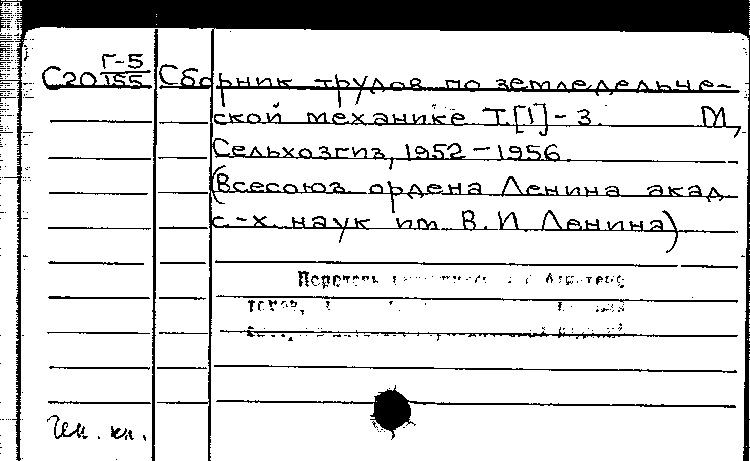 Г-5
С20 155 Сборник трудов по земледельче-
ской механике Т.[1]-3. М,
Сельхозгиз, 1952-1956.
(Всесоюз ордена Ленина акад
с.-х. наук им В.И. Ленина)
Перечень